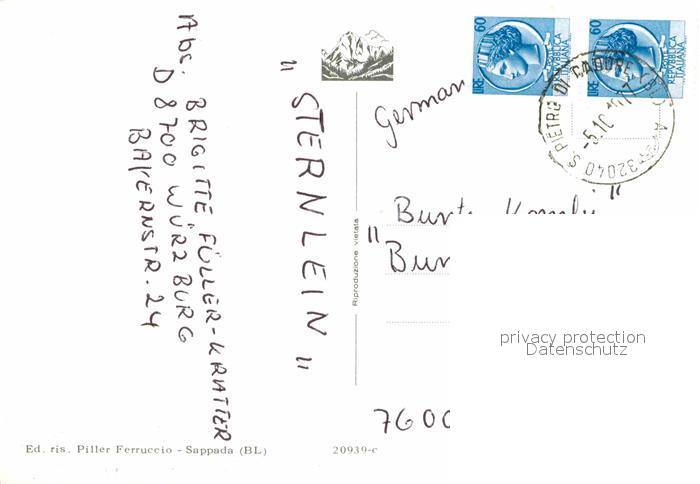 Abs. BRIGITTE FÜLLER-KRATTER
D 8700 WÜRZBURG
BAYERNSTR. 24
"STERNLEIN"
Riproduzione vietata
German
LIRE 60
REPUBBLICA
ITALIANA
LIRE 60
REPUBBLICA
ITALIANA
32040 S. PIETRO DI CADORE
-5.10
Bunte
"Bun
760
privacy protection
Datenschutz
Ed. ris. Piller Ferruccio - Sappada (BL)
20939-c